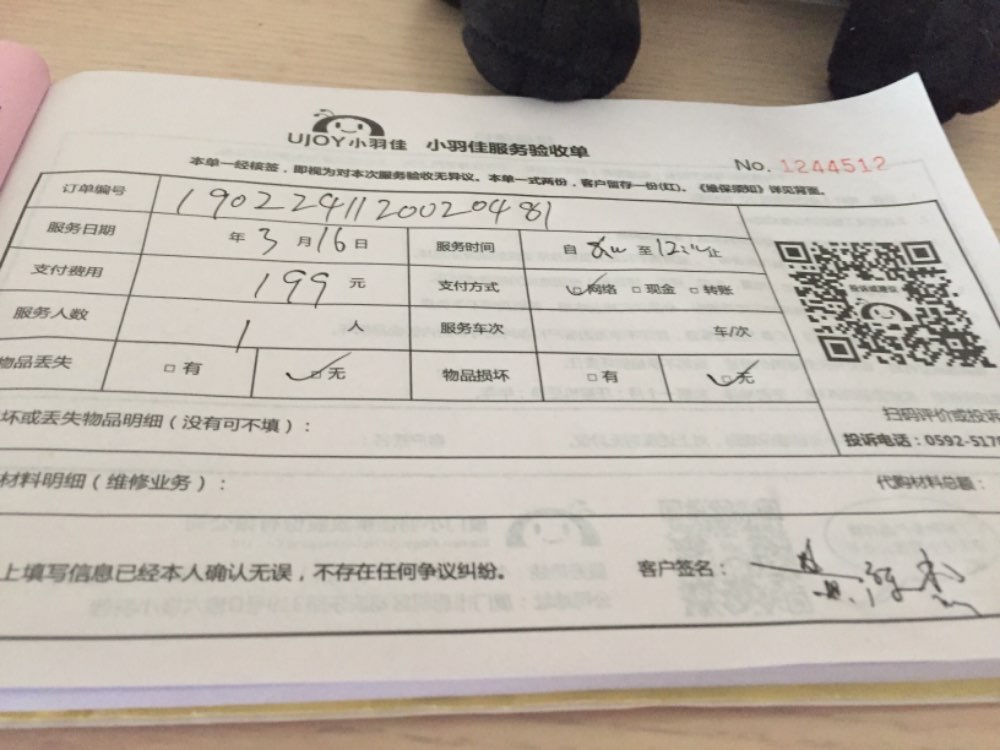 UJOY小羽佳 小羽佳服务验收单
No. 1244512
本单一经核签，即视为对本次服务验收无异议。本单一式两份，客户留存一份(红)。《维保须知》详见背面。
订单编号 19022411200020481
服务日期 年 3 月 16 日 服务时间 自 至 止
支付费用 199 元 支付方式 网络 □ 现金 □ 转账
投诉或建议
服务人数 1 人 服务车次 车/次
物品丢失 □ 有 □ 无 物品损坏 □ 有 □ 无
坏或丢失物品明细（没有可不填）：
扫码评价或投诉
投诉电话：0592-517
材料明细（维修业务）： 代购材料总额：
上填写信息已经本人确认无误，不存在任何争议纠纷。 客户签名：